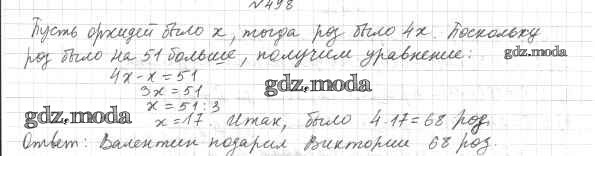 №498
Пусть орхидей было x, тогда роз было 4x. Поскольку
роз было на 51 больше, получим уравнение: gdz.moda
4x-x=51
3x=51 gdz.moda
x=51:3
gdz.moda x=17 Итак, было 4·17=68 роз.
Ответ: Валентин подарил Виктории 68 роз.